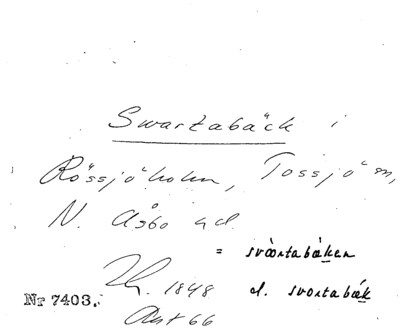 Swartabäck i
Rössjöholm, Tossjö sn,
N. Åsbo hd.
= svàrtabäken
Nr 7403. 1848 el. svortabäk
Ant 66